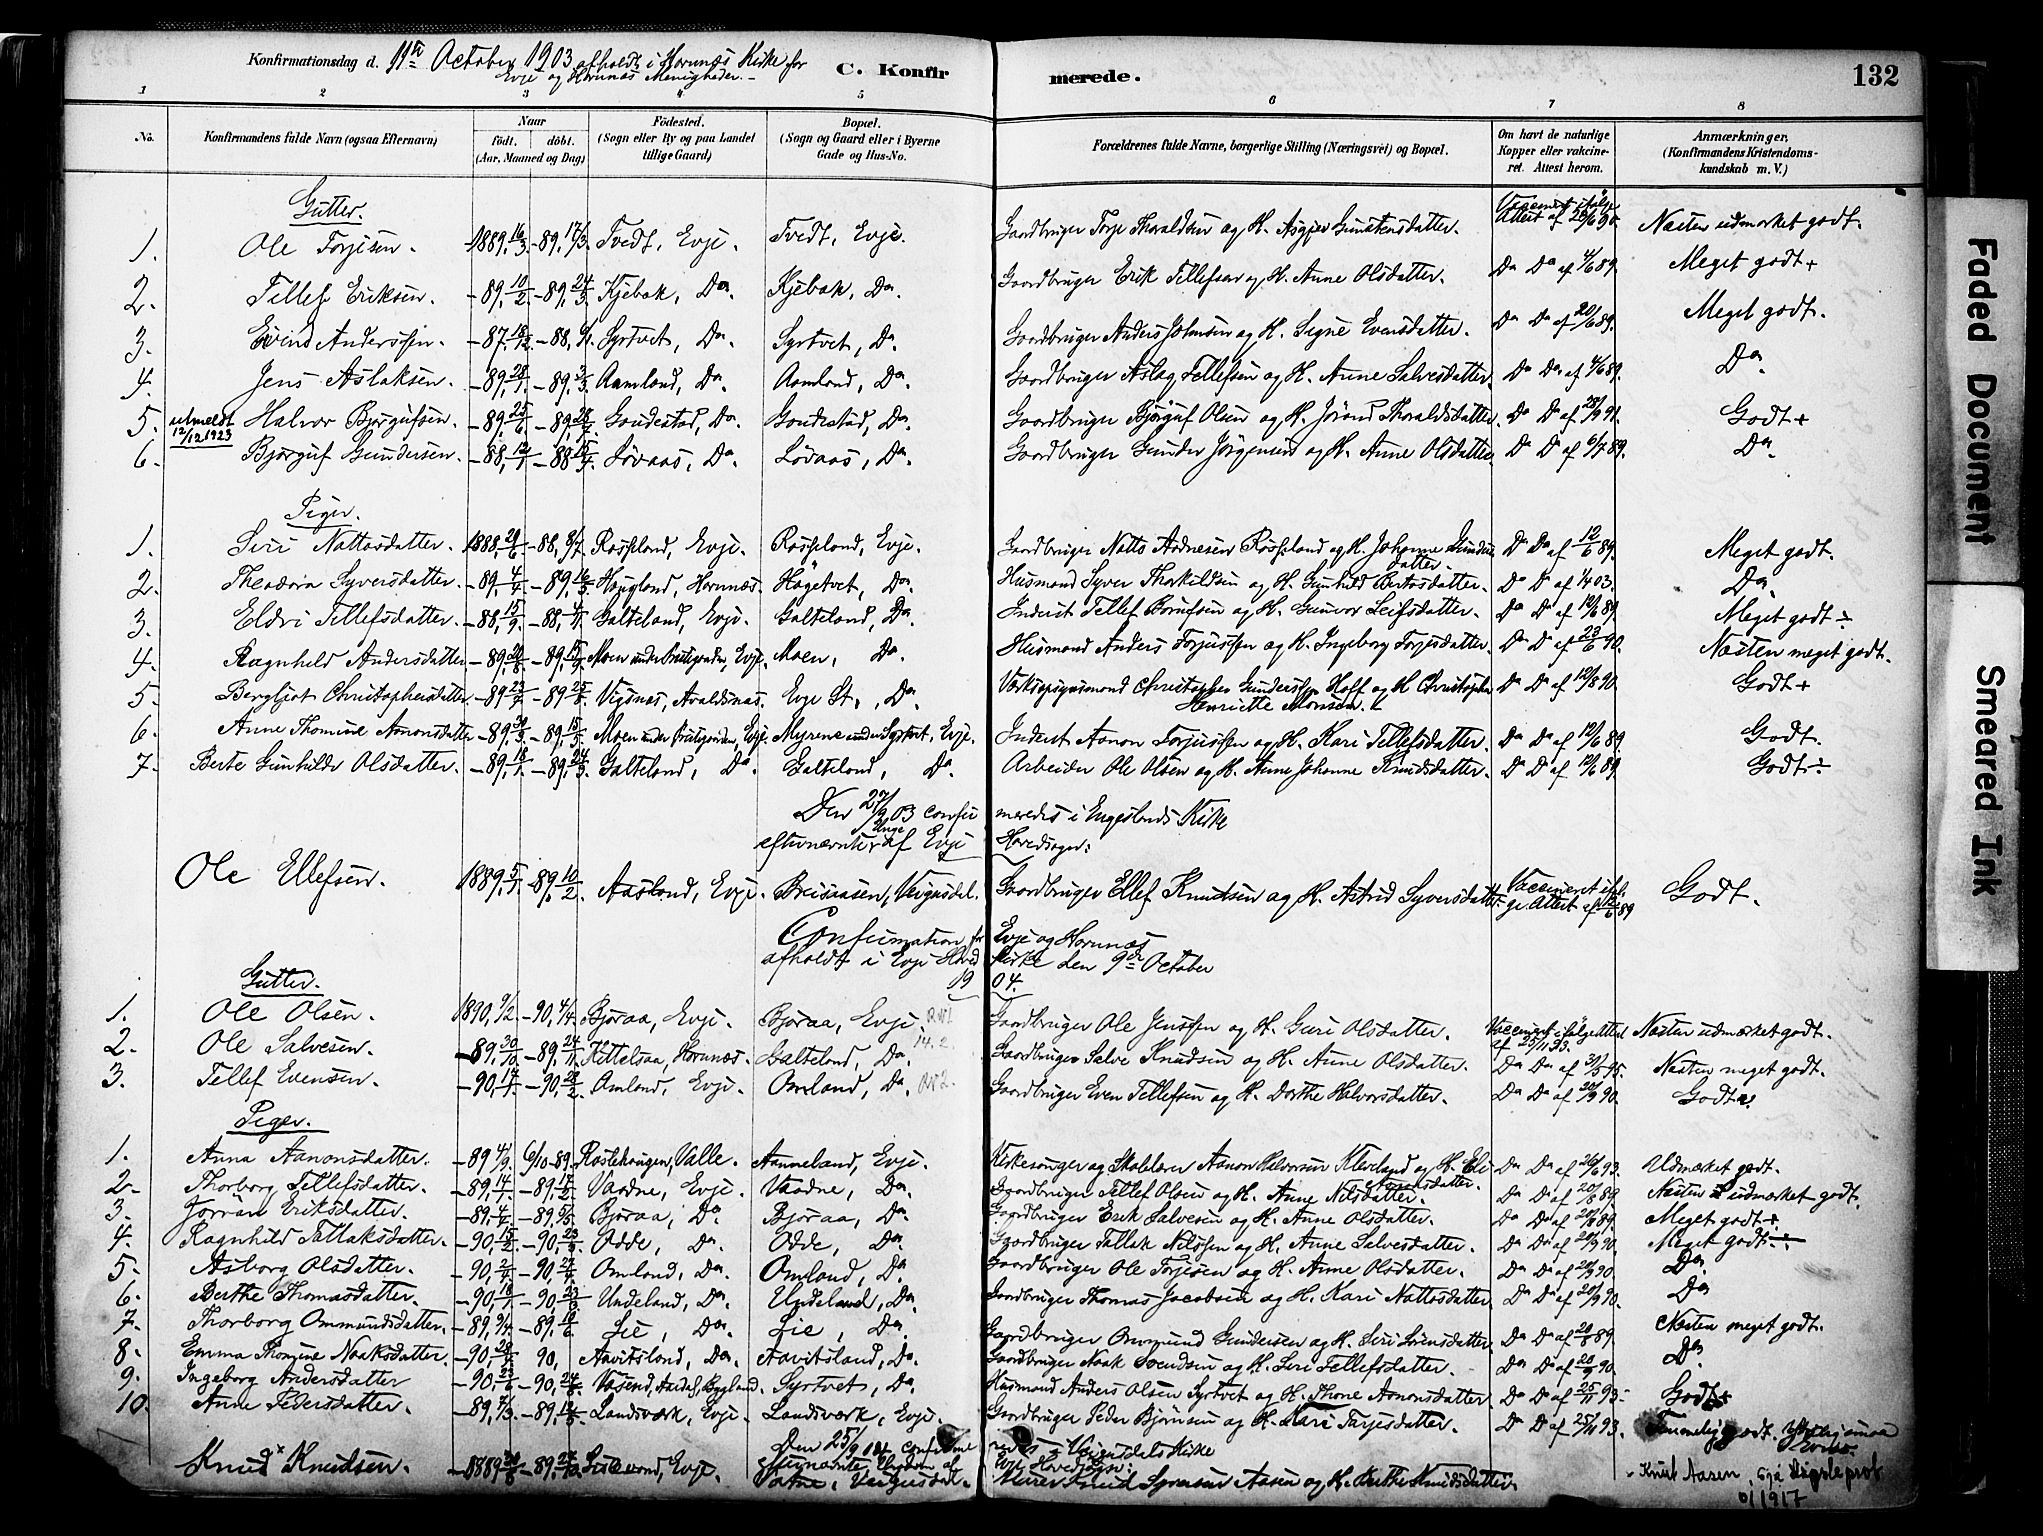 Konfirmationsdag d. 11te October 1903 afholdt i Hornnæs Kirke for
Evje og Hornnæs Menigheder.
C. Konfirmerede.
132
1 2 3 4 5 6 7 8
No. Konfirmandens fulde Navn (ogsaa Efternavn) Naar født. døbt. (Aar, Maaned og Dag) Fødested. (Sogn eller By og paa Landet tillige Gaard) Bopæl. (Sogn og Gaard eller i Byerne Gade og Hus-No. Forældrenes fulde Navne, borgerlige Stilling (Næringsvei) og Bopæl. Om havt de naturlige Kopper eller vakcineret. Attest herom. Anmærkninger. (Konfirmandens Kristendomskundskab m. V.)
Gutter.
1. Ole Torjisen. 1889, 16/3. -89, 17/3. Tvedt, Evje. Tvedt, Evje. Gaardbruger Torje Thoraldsen og H. Asgjer Gunstensdatter. Næsten udmærket godt.
2. Tellef Eriksen. -89, 10/2. -89, 24/3. Kjebak, Do. Kjebak, Do. Gaardbruger Erik Tellefsen og H. Anne Olsdatter. Do Do af 4/6 89. Meget godt +
3. Eivind Anderssen. -87, 18/12. -88, Syrtvet, Do. Syrtvet, Do. Gaardbruger Anders Johnsen og H. Signe Evensdatter. Do Do af 20/6 89. Meget godt.
4. Jens Aslaksen. -89, 28/1. -89, 3/3. Aamland, Do. Aamland, Do. Gaardbruger Aslag Tellefsen og H. Anne Salvesdatter. Do Do af 4/6 89. Do.
5. utmeldt 12/12 1923 Halvor Bjorgufsen. -89, -89, Gaudestad, Do. Gaudestad, Do. Gaardbruger Bjørguf Olsen og H. Jørand Thoraldsdatter. Do Do af 28/9 91. Godt +
6. Bjørguf Gundersen. -88, -88, Løvaas, Do. Løvaas, Do. Gaardbruger Gunder Jørgensen og H. Anne Olsdatter. Do Do af 6/7 89. Do.
Piger.
1. Siri Nattosdatter. 1888, 29/6. -88, 8/7. Rosseland, Evje. Rosseland, Evje. Gaardbruger Natto Aadnesen Rosseland og H. Johanne Gundersdatter. Do Do af 12/6 89. Meget godt.
2. Theodora Syversdatter. -89, 4/4. -89, Haugland, Hornnæs. Høgetvet, Do. Husmand Syver Thorkildsen og H. Gunhild Bertosdatter. Do Do af 1/4 03. Do.
3. Eldri Tellefsdatter. -88, 15/9. -88, Galteland, Evje. Galteland, Do. Inderst Tellef Bornfsen og H. Gunvor Leifsdatter. Do Do af 12/6 89. Meget godt ÷
4. Ragnhild Andersdatter. -89, -89, Moen under Prestegaarden, Evje. Moen, Do. Husmand Anders Torjussen og H. Ingeborg Torjesdatter. Do Do af 23/6 90. Næsten meget godt.
5. Bergljot Christophersdatter. -89, -89, Vigsnes, Avaldsnæs. Evje St., Do. Værksopsynsmand Christopher Gundersen Hoff og H. Christophine Henriette Monsen. Do Do af 12/8 90. Godt +
6. Anne Thomine Aanonsdatter -89, -89, Moen under Prestegaarden, Evje. Myrene under Syrtvet, Evje. Inderst Aanon Torjussen og H. Kari Tellefsdatter. Do Do af 12/6 89. Godt.
7. Berte Gunhilde Olsdatter. -89, 18/1. -89, 24/3. Galteland, Do. Galteland, Do. Arbeider Ole Olsen og H. Anne Johanne Knudsdatter. Do Do af 12/6 89. Godt ÷
Den 27/9 03 confirmeredes i Engeslands Kirke
efternævnte Unge af Evje Hovedsogn:
Ole Ellefsen. 1889, 5/1. -89, 10/2. Aasland, Evje. Breisaasen, Vegusdal. Gaardbruger Ellef Knudsen og H. Astrid Syversdatter. Godt.
Confirmation for Evje og Hornnæs
afholdt i Evje Hovedkirke den 9de October
1904.
Gutter.
1. Ole Olsen. 1890, 9/2. -90, 4/4. Bjøraa, Evje. Bjøraa, Evje. Gaardbruger Ole Jenssen og H. Guri Olsdatter. Vaccineret ifølge Attest af 25/11 93. Næsten udmærket godt.
2. Ole Salvesen. -89, 30/10. -89, 24/11. Kittelsaa, Hornnæs. Galteland, Do. Gaardbruger Salve Knudsen og H. Anne Olsdatter. Do Do af 31/5 95. Næsten meget godt.
3. Tellef Evensen. -90, -90, Omland, Evje. Omland, Do. Gaardbruger Even Tellefsen og H. Dorthe Halvorsdatter. Do Do af 20/9 90. Godt
Piger.
1. Anna Aanonsdatter. -89 4/9. 6/10 -89. Rostehaugen, Valle. Aanneland, Evje. Kirkesanger og Skolelærer Aanon Halvorsen Kleveland og H. Do Do af 26/6 93. Udmærket godt.
2. Thorborg Tellefsdatter. -89, 14/1. -89, 17/2. Vaadne, Evje. Vaadne, Do. Gaardbruger Tellef Olsen og H. Anne Nilsdatter. Do Do af 20/8 89. Næsten udmærket godt.
3. Jørran Eriksdatter. -89, -89, 5/5. Bjøraa, Do. Bjøraa, Do. Gaardbruger Erik Salvesen og H. Anne Olsdatter. Do Do af 20/8 89. Meget godt +
4. Ragnhild Tallaksdatter. -90, -90, Odde, Do. Odde, Do. Gaardbruger Tallak Nilssen og H. Anne Salvesdatter. Do Do af 20/9 90. Meget godt ÷
5. Asborg Olsdatter. -90, -90, Omland, Do. Omland, Do. Gaardbruger Ole Torjesen og H. Anne Olsdatter. Do Do af 20/9 90. Do.
6. Berthe Thomasdatter. -90, -90, Undeland, Do. Undeland, Do. Gaardbruger Thomas Jacobsen og H. Kari Nattosdatter. Do Do af 20/9 90. Do
7. Thorborg Ommundsdatter. -89, 9/4. -89, Lie, Do. Lie, Do. Gaardbruger Ommund Gundersen og H. Siri Sørensdatter. Do Do af 20/8 89. Næsten meget godt.
8. Emma Thomine Noaksdatter. -90, 90, Aavitsland, Do. Aavitsland, Do. Gaardbruger Noak Svendsen og H. Siri Tellefsdatter. Do Do af 20/9 90. Do
9. Ingeborg Andersdatter -90, -90, Vasend, Aardal, Bygland. Syrtvet, Do. Husmand Anders Olsen Syrtvet og H. Thone Aanonsdatter. Do Do af 25/11 93. Godt +
10. Anne Pedersdatter. -89, 7/3. -89, Landsværk, Evje. Landsværk, Evje. Gaardbruger Peder Bjørnsen og H. Kari Tarjesdatter. Do Do af 25/11 93. Temmelig godt.
Den 25/9 04 confirmeredes i Vegusdals Kirke
efternævnte Ungdom af Evje Hovedsogn:
Knud Knudsen. -1889 -89, Evje. Vatne, Vegusdal. Knud Syvertsen Aasen og H. Berthe Knudsdatter.
Knut Aasen,
1917
Faded Document
Smeared Ink